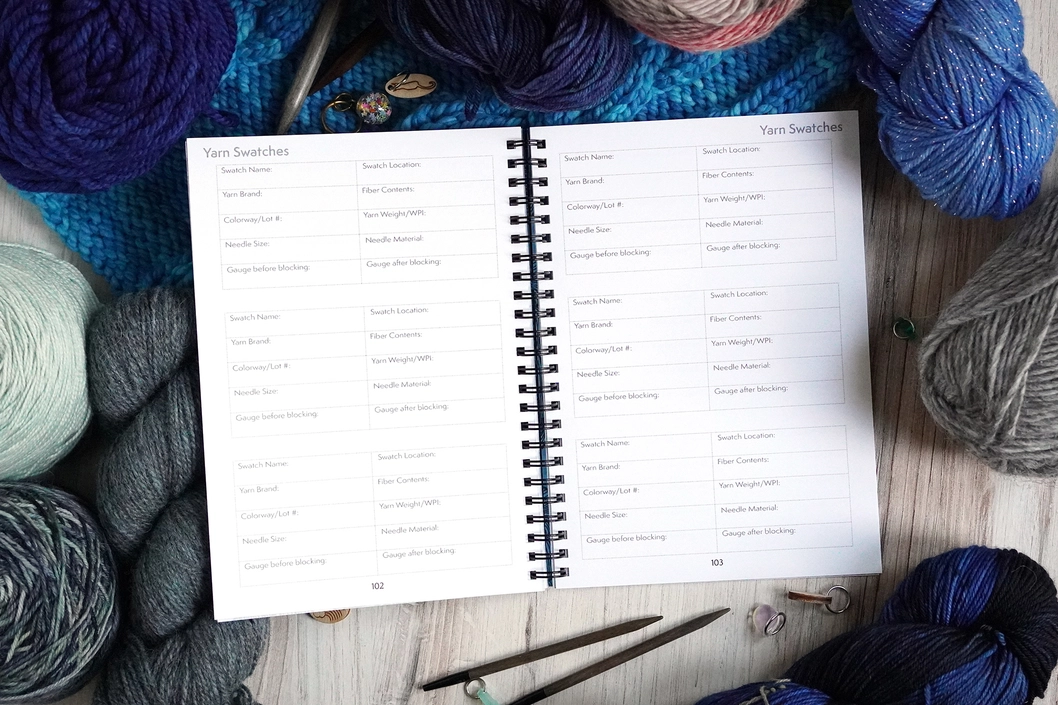 Yarn Swatches
Swatch Name: Swatch Location:
Yarn Brand: Fiber Contents:
Colorway/Lot #: Yarn Weight/WPI:
Needle Size: Needle Material:
Gauge before blocking: Gauge after blocking:
Swatch Name: Swatch Location:
Yarn Brand: Fiber Contents:
Colorway/Lot #: Yarn Weight/WPI:
Needle Size: Needle Material:
Gauge before blocking: Gauge after blocking:
Swatch Name: Swatch Location:
Yarn Brand: Fiber Contents:
Colorway/Lot #: Yarn Weight/WPI:
Needle Size: Needle Material:
Gauge before blocking: Gauge after blocking:
102
Yarn Swatches
Swatch Name: Swatch Location:
Yarn Brand: Fiber Contents:
Colorway/Lot #: Yarn Weight/WPI:
Needle Size: Needle Material:
Gauge before blocking: Gauge after blocking:
Swatch Name: Swatch Location:
Yarn Brand: Fiber Contents:
Colorway/Lot #: Yarn Weight/WPI:
Needle Size: Needle Material:
Gauge before blocking: Gauge after blocking:
Swatch Name: Swatch Location:
Yarn Brand: Fiber Contents:
Colorway/Lot #: Yarn Weight/WPI:
Needle Size: Needle Material:
Gauge before blocking: Gauge after blocking:
103